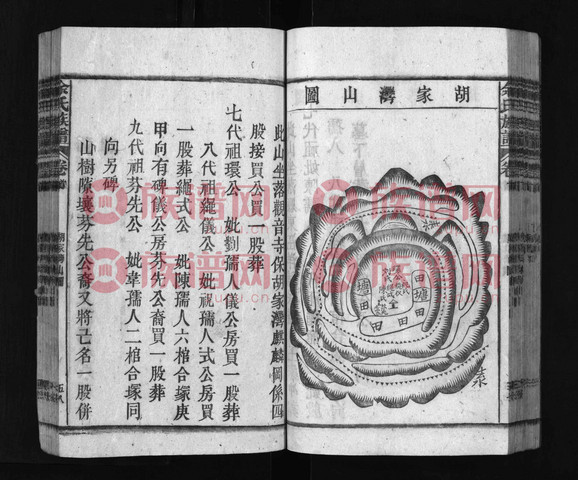 胡家灣山圖
田
壚
田
田
田
壚
此山坐落觀音寺保胡家灣麒麟岡係四
股接買公買一股葬
七代祖環公 妣劉孺人儀公房買一股葬
八代祖經儀公 妣祝孺人式公房買
一股葬繩式公 妣陳孺人六棺合塚庚
甲向有碑儀公房芬先公裔買一股葬
九代祖芬先公 妣韋孺人二棺合塚同
向另碑
山樹隙壤芬先公裔又將亡名一股併
余氏族譜
卷首
胡家灣山圖
五八
族谱网